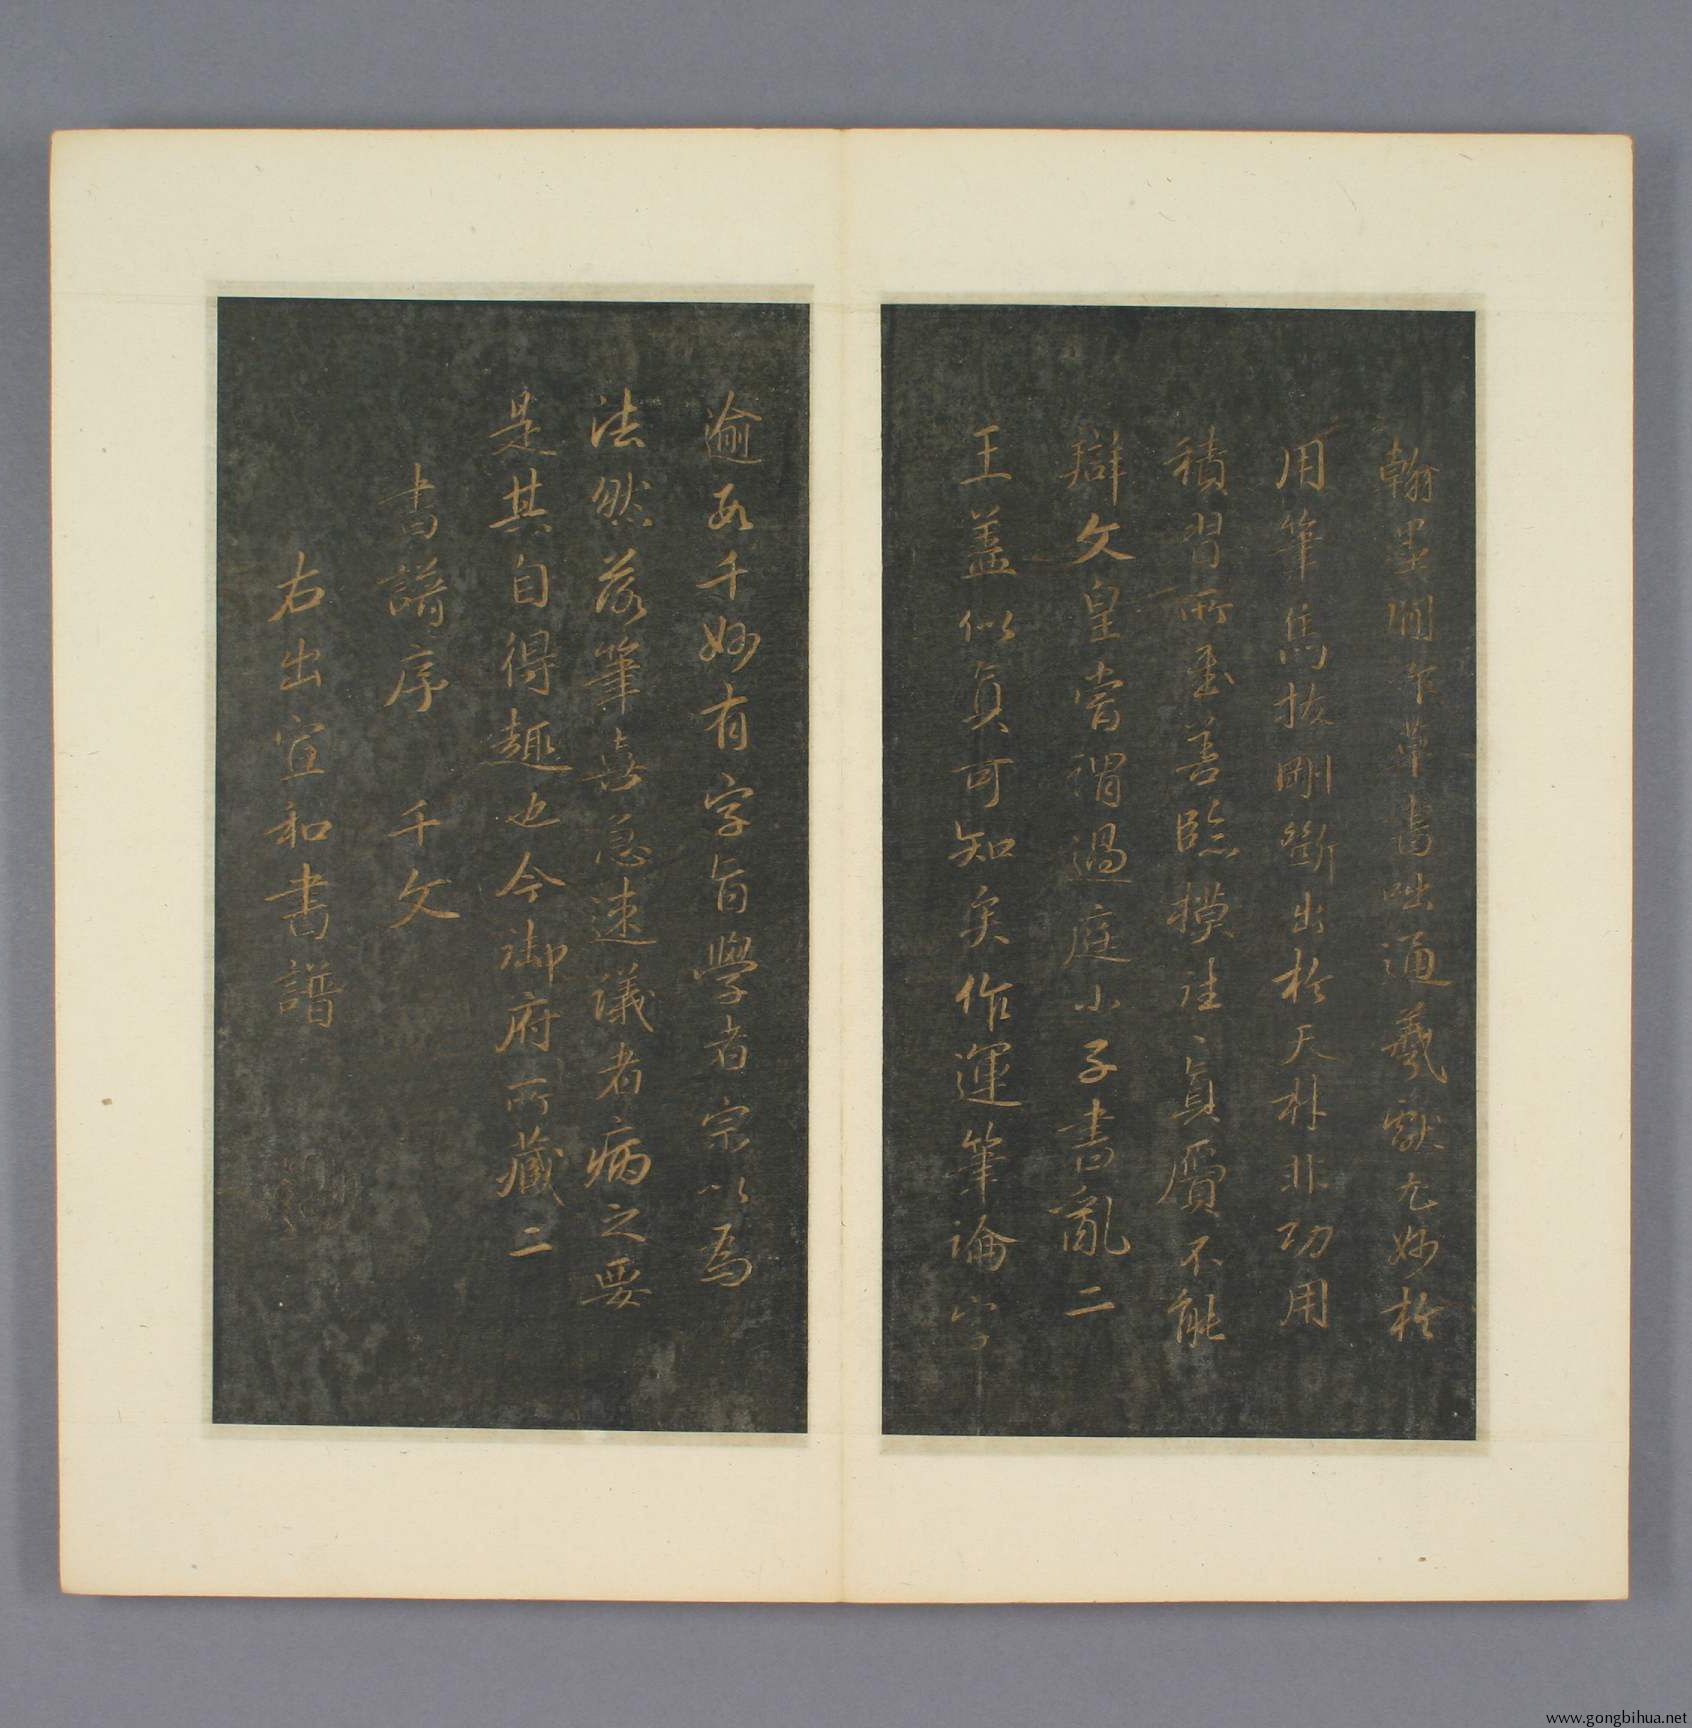 翰墨間作草書咄逼羲獻尤妙於
用筆雋拔剛斷出於天材非功用
積習所至善臨模往往真贋不能
辯文皇嘗謂過庭小子書亂二
王蓋似真可知矣作運筆論字
逾數千妙有字旨學者宗以為
法然落筆喜急速議者病之要
是其自得趣也今御府所藏二
書譜序 千文
右出宣和書譜
www.gongbihua.net